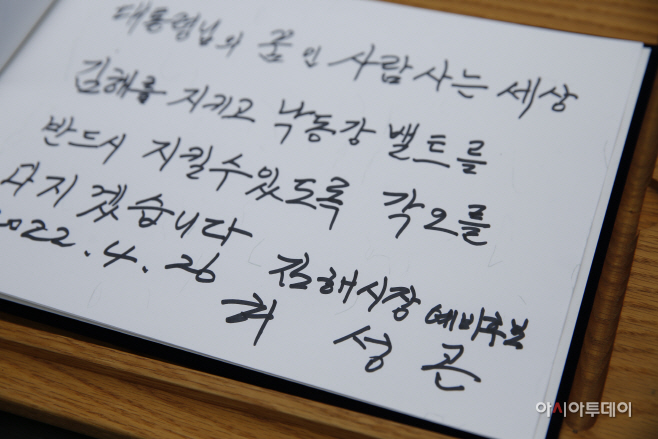 대통령님의 꿈인 사람사는 세상
김해를 지키고 낙동강 밸트를
반드시 지킬수있도록 각오를
다지겠습니다
2022.4.26 김해시장 예비후보
허성곤
아시아투데이